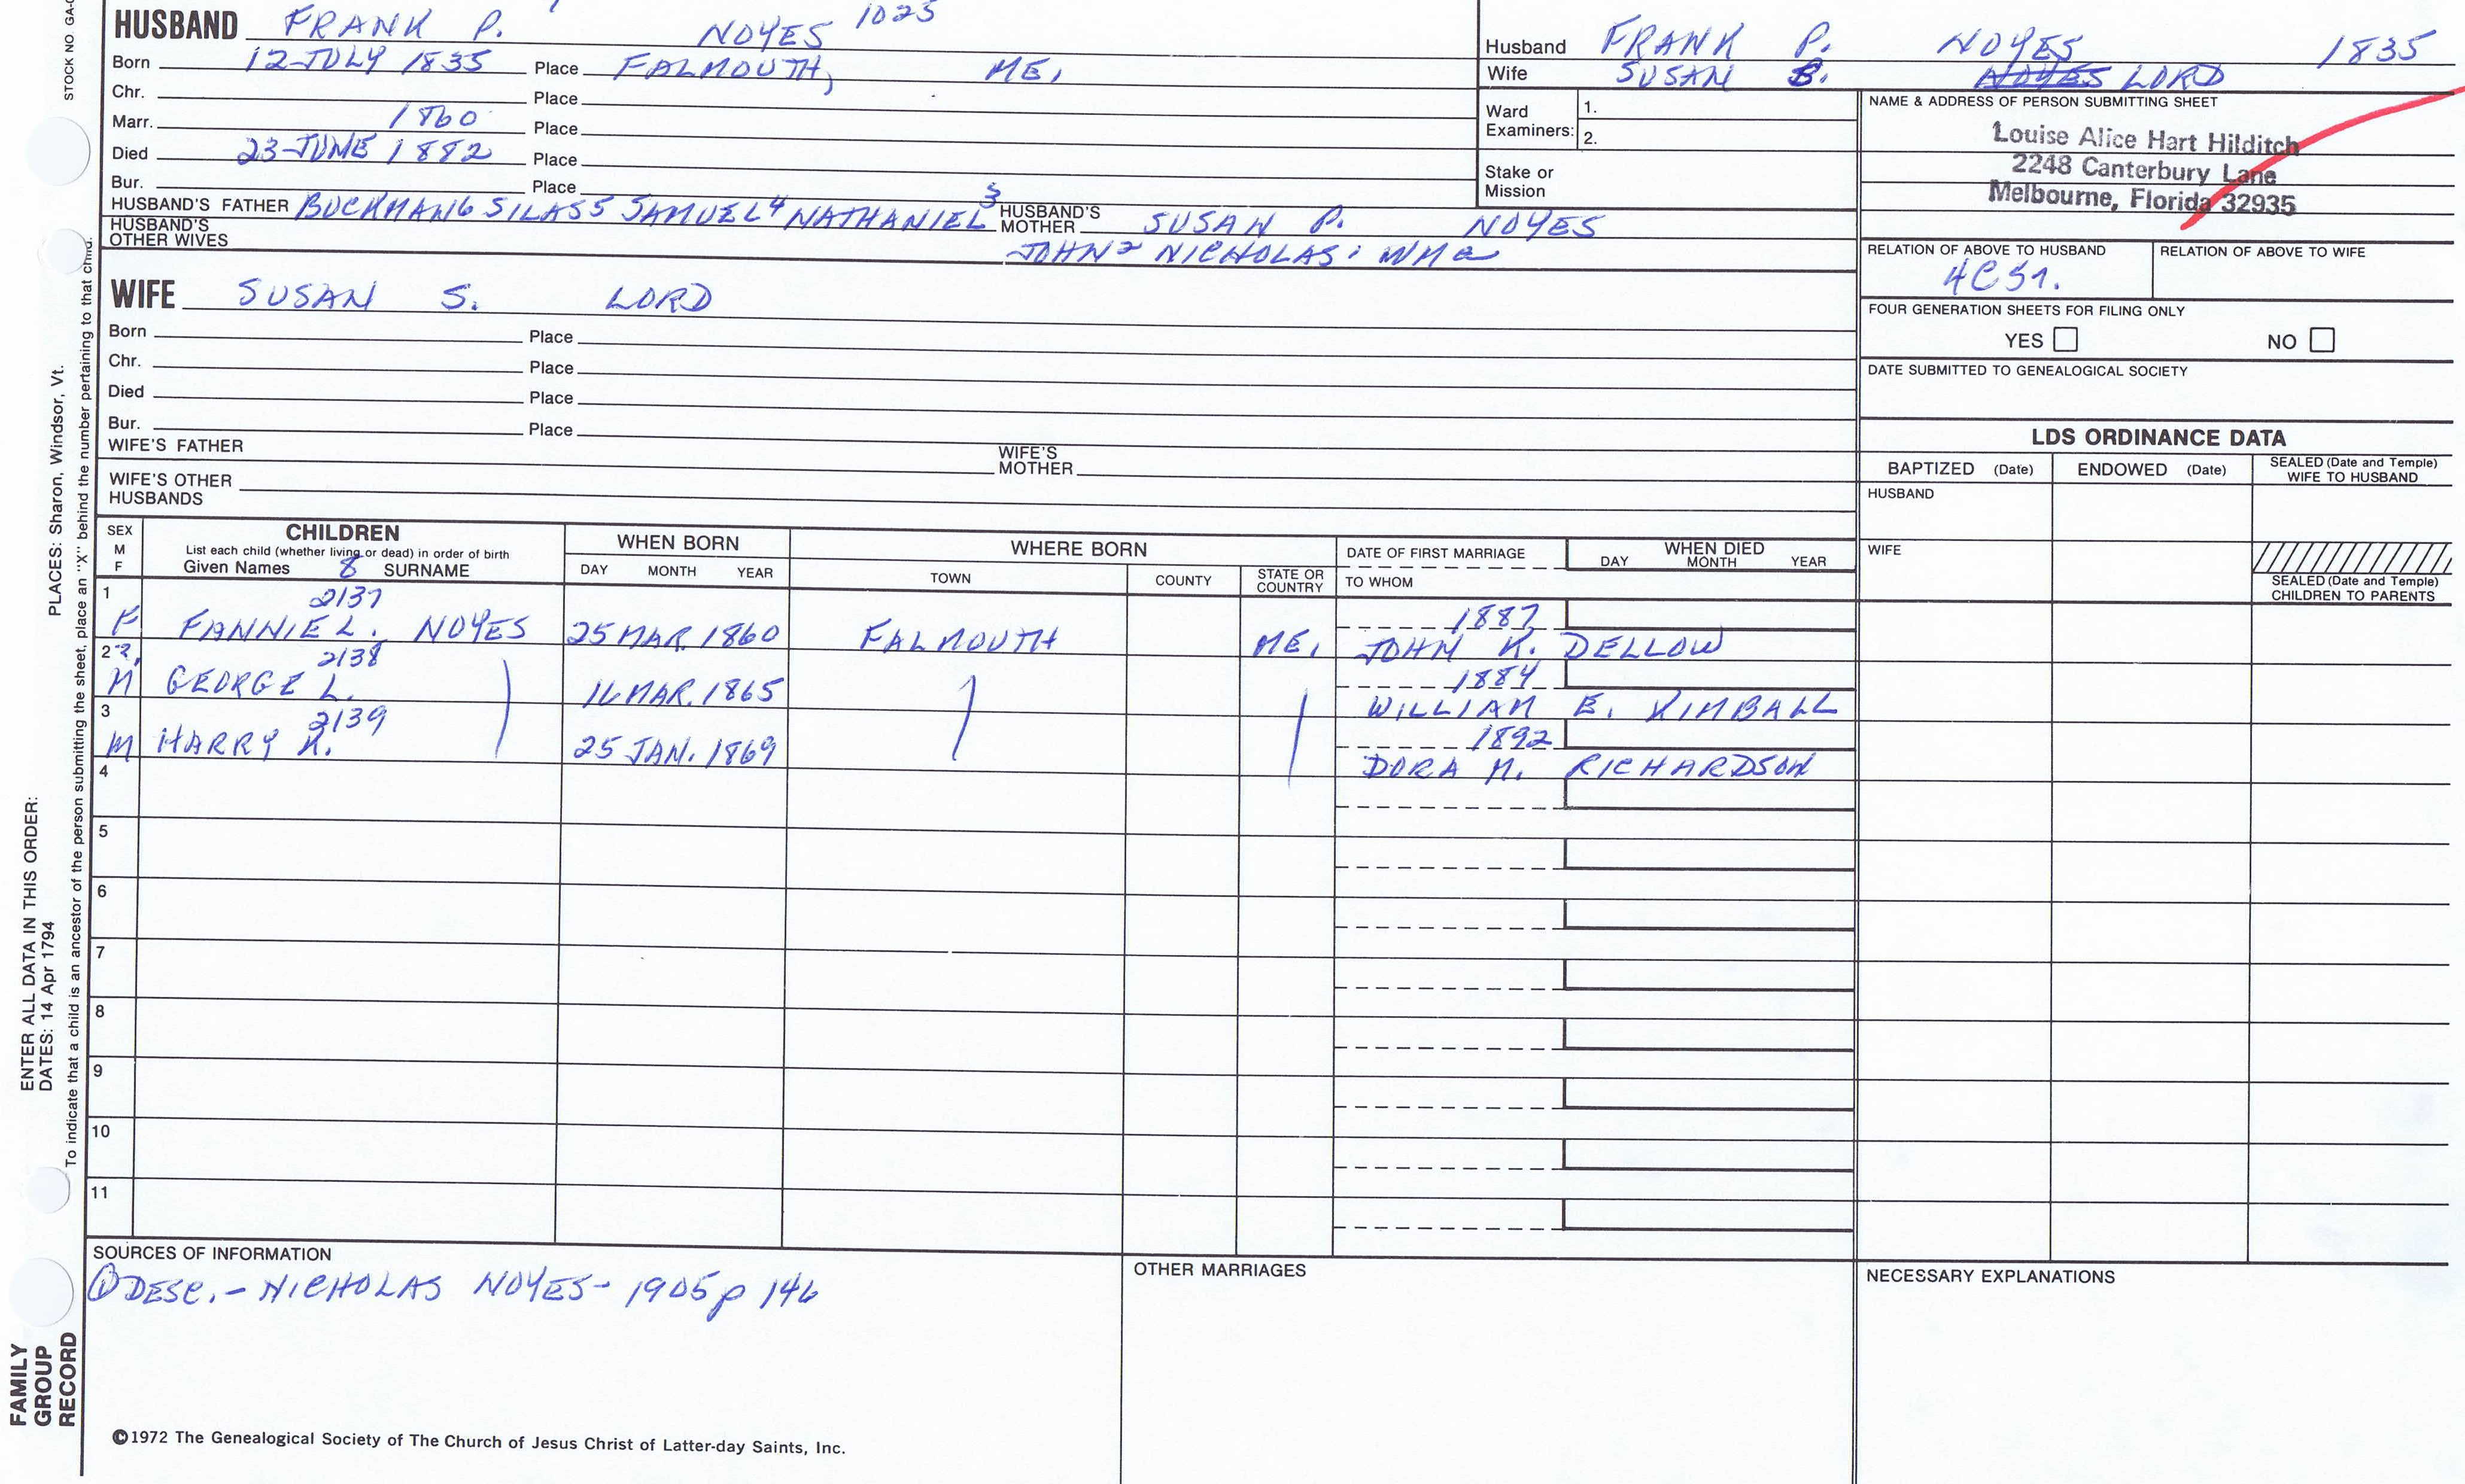 HUSBAND FRANK P. NOYES 1025
Born 12 JULY 1835 Place FALMOUTH, ME,
Chr. Place
Marr. 1860 Place
Died 23 JUNE 1882 Place
Bur. Place
HUSBAND'S FATHER BUCKMAN6 SILAS5 SAMUEL4 NATHANIEL3 HUSBAND'S MOTHER SUSAN P. NOYES
HUSBAND'S OTHER WIVES JOHN2 NICHOLAS1 WMa
WIFE SUSAN S. LORD
Born Place
Chr. Place
Died Place
Bur. Place
WIFE'S FATHER WIFE'S MOTHER
WIFE'S OTHER HUSBANDS
Husband FRANK P. NOYES 1835
Wife SUSAN S. NOYES LORD
Ward Examiners: 1.
2.
Stake or Mission
NAME & ADDRESS OF PERSON SUBMITTING SHEET
Louise Alice Hart Hilditch
2248 Canterbury Lane
Melbourne, Florida 32935
RELATION OF ABOVE TO HUSBAND RELATION OF ABOVE TO WIFE
FOUR GENERATION SHEETS FOR FILING ONLY
YES NO
DATE SUBMITTED TO GENEALOGICAL SOCIETY
LDS ORDINANCE DATA
BAPTIZED (Date) ENDOWED (Date) SEALED (Date and Temple) WIFE TO HUSBAND
HUSBAND
WIFE
SEALED (Date and Temple) CHILDREN TO PARENTS
SEX M F
CHILDREN
List each child (whether living or dead) in order of birth
Given Names 8 SURNAME
WHEN BORN
DAY MONTH YEAR
WHERE BORN
TOWN COUNTY STATE OR COUNTRY
DATE OF FIRST MARRIAGE
TO WHOM
WHEN DIED
DAY MONTH YEAR
1 2137 1887
F FANNIE L. NOYES 25 MAR. 1860 FALMOUTH ME, JOHN K. DELLOW
2 2138 1884
M GEORGE L. 16 MAR. 1865 WILLIAM E. KIMBALL
3 2139 1892
M HARRY K. 25 JAN. 1869 DORA M. RICHARDSON
4
5
6
7
8
9
10
11
SOURCES OF INFORMATION
① DESC. - NICHOLAS NOYES - 1905 p 146
OTHER MARRIAGES
NECESSARY EXPLANATIONS
©1972 The Genealogical Society of The Church of Jesus Christ of Latter-day Saints, Inc.
STOCK NO GA-
PLACES: Sharon, Windsor, Vt.
To indicate that a child is an ancestor of the person submitting the sheet, place an "X" behind the number pertaining to that child.
ENTER ALL DATA IN THIS ORDER:
DATES: 14 Apr 1794
FAMILY
GROUP
RECORD